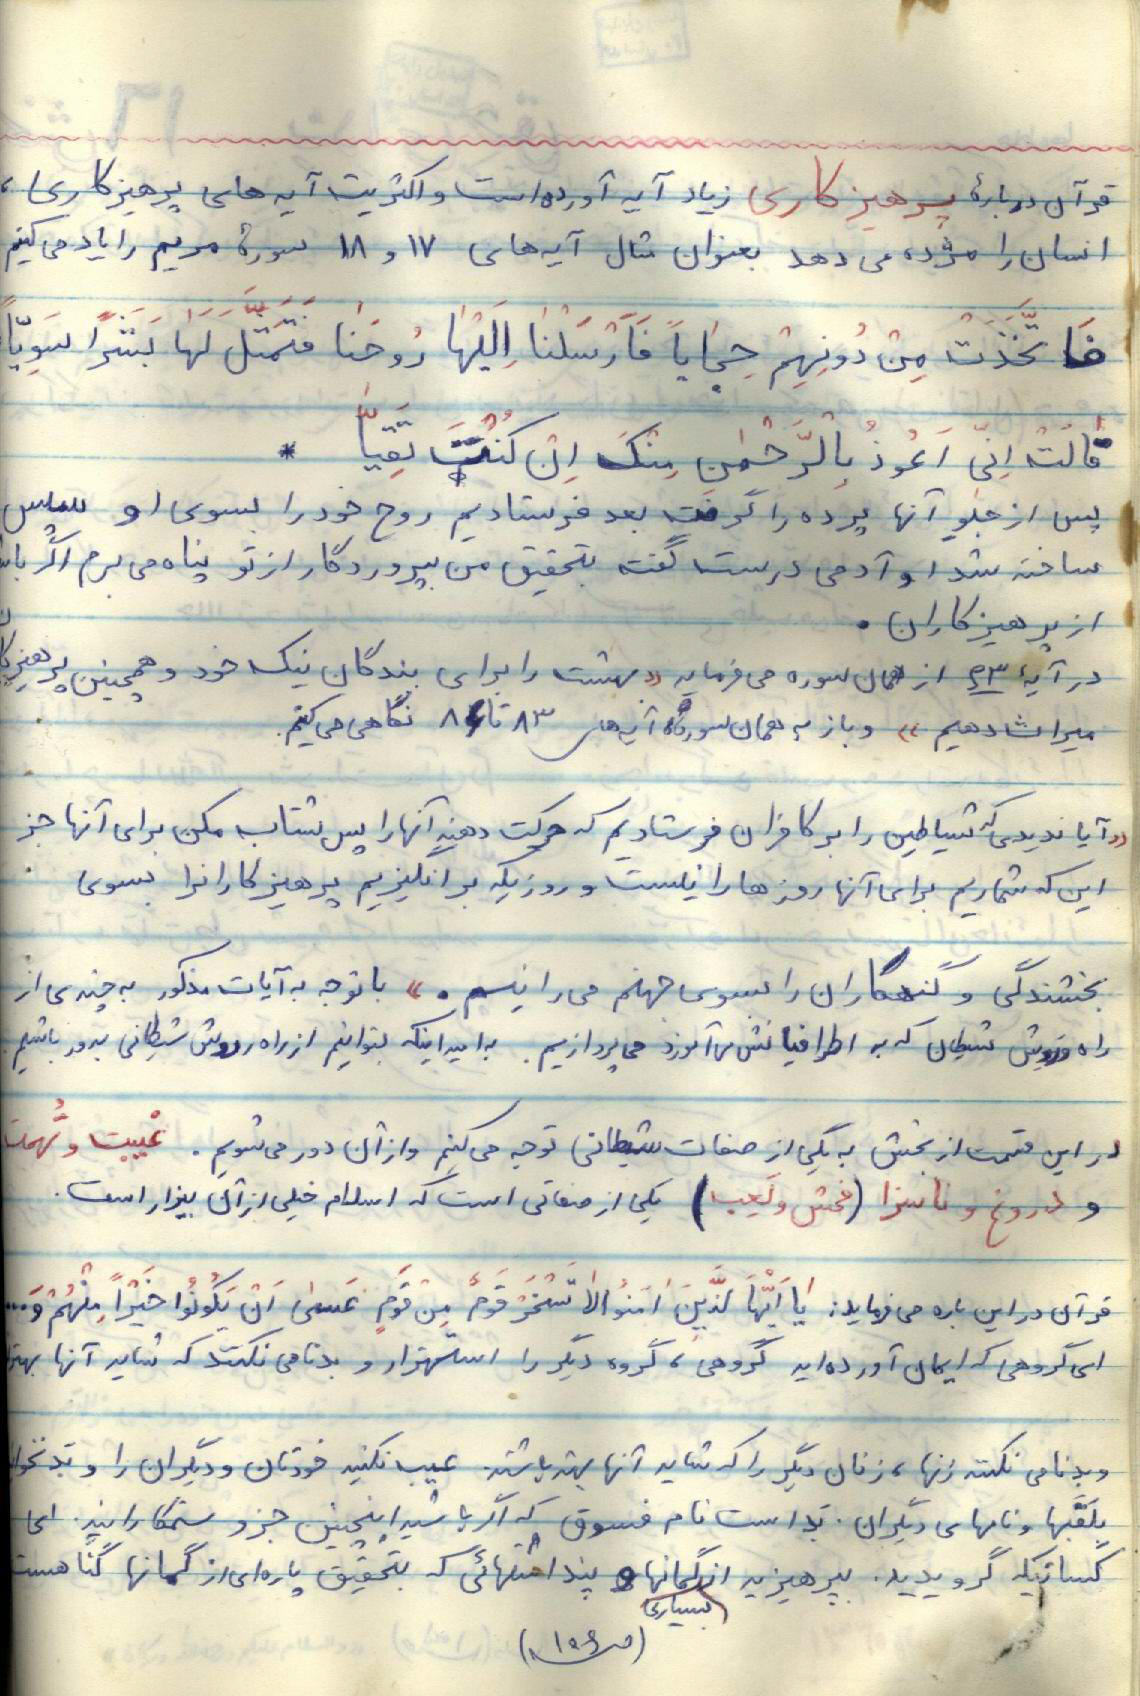 قرآن دربارهٔ پرهیزکاری زیاد آیه آورده است و اکثریت آیه های پرهیزکاری،
انسان را مژده می دهد بعنوان مثال آیه های ۱۷ و ۱۸ سورهٔ مریم را یاد می کنیم
فَاتَّخَذَتْ مِنْ دُونِهِمْ حِجٰاباً فَاَرْسَلْنٰا اِلَیْهٰا رُوحَنٰا فَتَمَثَّلَ لَهٰا بَشَرًا سَوِیّاً
قٰالَتْ اِنّی اَعُوذُ بِالْرَّحْمٰنِ مِنْکَ اِنْ کُنْتَ تَقِیّاً *
پس از جلوِ آنها پرده را گرفت بعد فرستادیم روح خود را بسوی او سپس
ساخته شد او آدمی درست گفت بتحقیق من بپروردگار از تو پناه می برم اگر
از پرهیزکاران .
در آیهٔ ۶۳ از همان سوره می فرماید «بهشت را برای بندگان نیک خود و همچنین
میراث دهیم» و باز به همان سوره آیه های ۸۳ تا نگاهی می کنیم.
«آیا ندیدی که شیاطین را بر کافران فرستادیم که حرکت دهند آنها را پس شتاب مکن برای آنها جز
این که شماریم برای آنها روزها را نیست و روزیکه برانگیزیم پرهیزکارانرا بسوی
بخشندگی و گنهکاران را بسوی جهنم می رانیم .» با توجه به آیات مذکور به چندی از
راه و روش شیطان که به اطرافیانش می آموزد می پردازیم. به امید اینکه بتوانیم از راه و روش شیطانی بدور باشیم.
در این قسمت از بخش به یکی از صفات شیطانی توجه می کنیم و از آن دور می شویم . غیبت و تُهمت
و دروغ و ناسزا (فحش و لَعِب) یکی از صفاتی است که اسلام خیلی از آن بیزار است.
قرآن در این باره می فرماید: یٰا اَیُّهَا لَّذینَ اٰمَنُوا لاٰ تَسْخَرْ قَومٌ مِنْ قَومٍ عَسیٰ اَنْ یَکُونُوا خَیْراً مِنْهُمْ وَ...
ای گروهی که ایمان آورده اید گروهی، گروه دیگر را استهزار و بدنامی نکنند که شاید آنها
و بدنامی نکنند زنها، زنان دیگر را که شاید آنها بهتر باشند. عیب نکنید خودتان و دیگران را و
بِلَقَبها و نامهای دیگران . بَد است نام فسوق که اگر باشید اینچنین جزو ستمکارانید. ای
کسانیکه گرویدید. بپرهیزید از گمانها و پنداشتهائی که بتحقیق پاره ای از گمانها گناهست
بسیاری